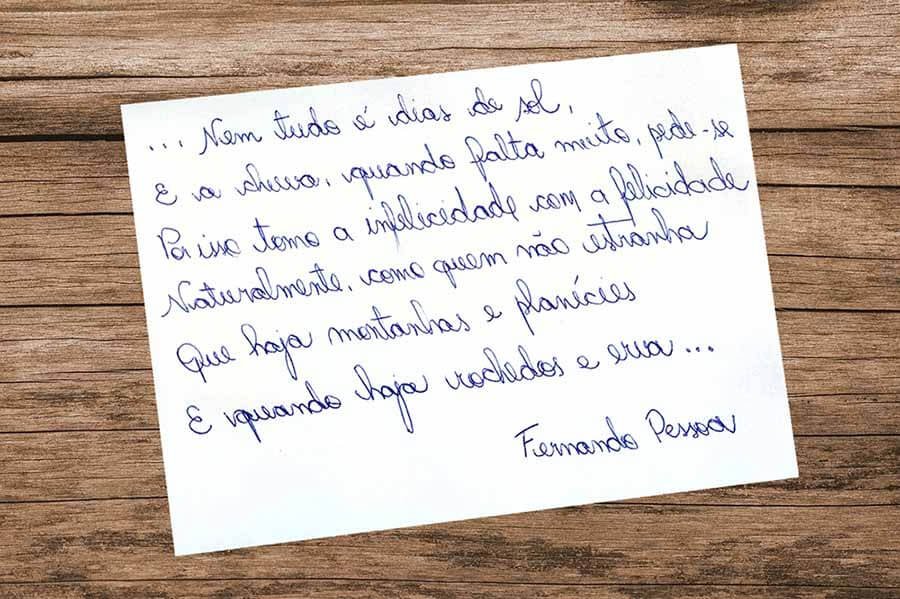 ... Nem tudo é dias de sol,
E a chuva, quando falta muito, pede-se
Por isso tomo a infelicidade com a felicidade
Naturalmente, como quem não estranha
Que haja montanhas e planícies
E quando haja rochedos e erva...
Fernando Pessoa